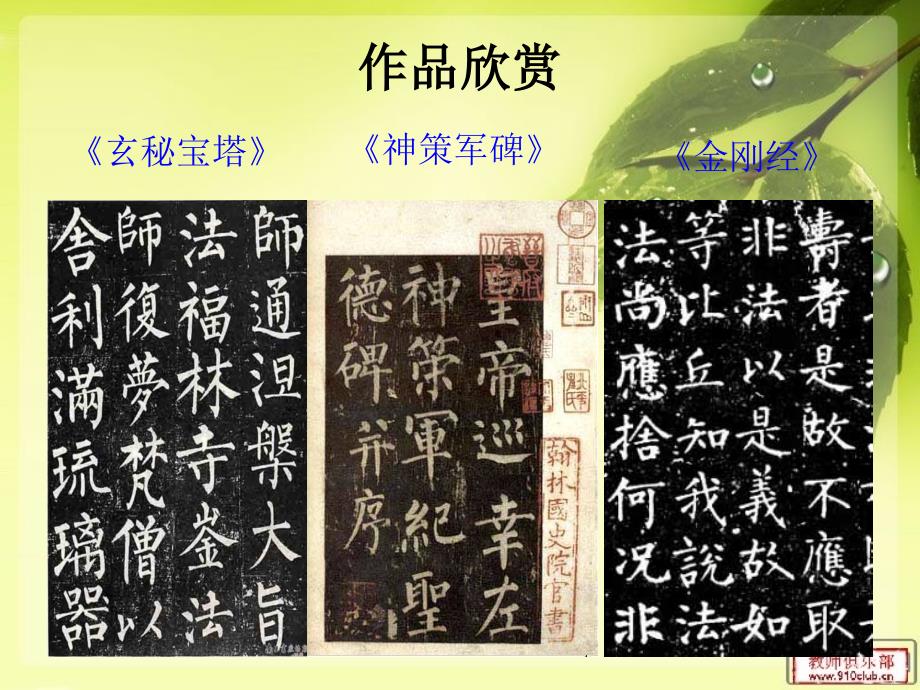 作品欣赏
《玄秘宝塔》
《神策军碑》
《金刚经》
師通涅槃大旨
法福林寺崟法
師復夢梵僧以
舍利滿琉璃器
皇帝巡幸左
神策軍紀聖
德碑并序
翰林國史院官書
壽者是故不應取
非法以是義故如
等比丘知我說法
法尚應捨何況非
教师俱乐部
www.910club.cn